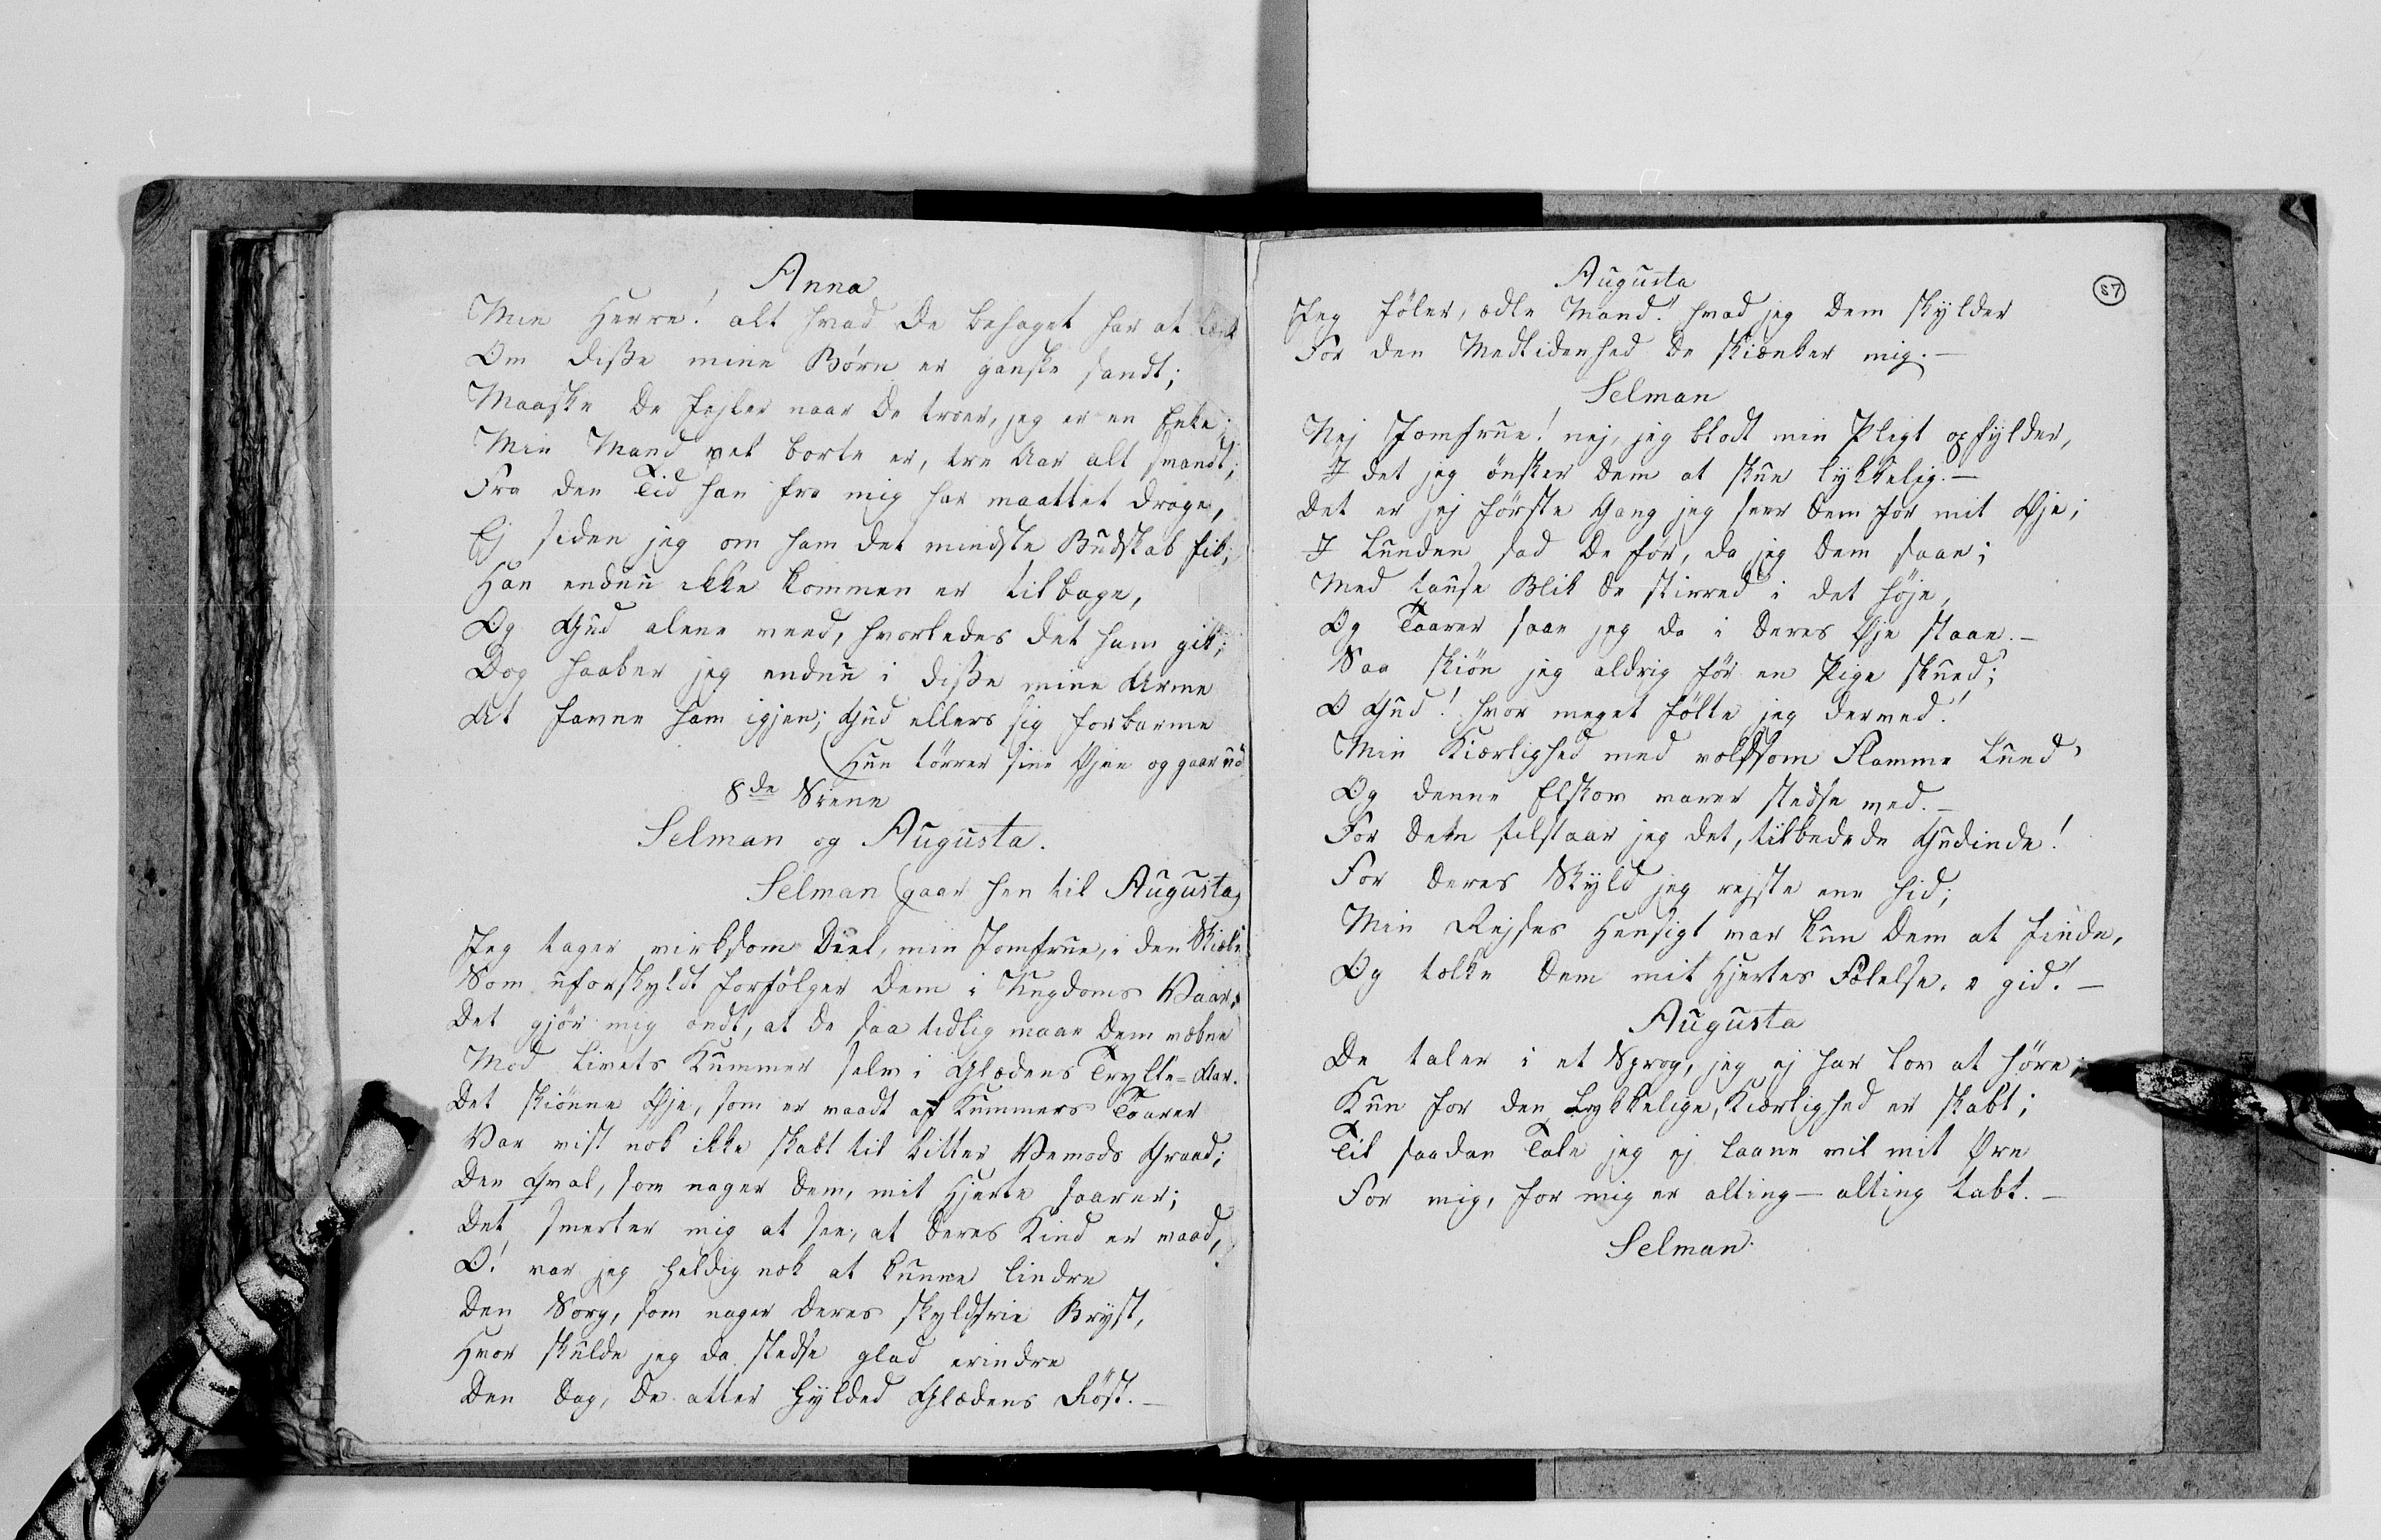 Anna
Min Herre! alt hvad De behaget har at tænke
Om disse mine Børn er ganske sandt;
Maaske De fejler naar De troer, jeg er en Enke;
Min Mand vel borte er, tre Aar alt svandt;
Fra den Tid han fra mig har maattet drage,
Ej siden jeg om ham det mindste Budskab fik;
Han endnu ikke kommen er tilbage,
Og Gud alene veed, hvorledes det ham gik;
Dog haaber jeg endnu i disse mine Arme
At favne ham igjen; Gud ellers sig forbarme
(Hun törrer sine Øjne og gaar ud
8de Scene
Selman og Augusta.
Selman (gaar hen til Augusta)
Jeg tager virksom Deel, min Jomfrue, i den Skiæbne
Som uforskyldt forfölger Dem i Ungdoms Vaar,
Det gjör mig ondt, at De saa tidlig maae Dem væbne
Mod Livets Kummer selv i Glædens Trylle-Aar.
Det skiönne Øje, som er vaadt af Kummers Taarer
Var vist nok ikke skabt til bitter Vemods Graad;
Den Qval, som nager Dem, mit Hjerte saarer;
Det smerter mig at see, at Deres Kind er vaad,
O! var jeg heldig nok at kunne lindre
Den Sorg, som nager Deres skyldfrie Bryst,
Hvor skulde jeg da stedse glad erindre
Den Dag, De atter hylded Glædens Röst. —
87
Augusta
Jeg föler, ædle Mand! hvad jeg Dem skylder
For den Medlidenhed De skiænker mig. —
Selman
Nej Jomfrue! nej, jeg blodt min Pligt opfylder,
I det jeg önsker Dem at skue lykkelig. —
Det er ej förste Gang jeg seer Dem for mit Øje;
I Lunden sad De för, da jeg Dem saae;
Med tause Blik De stirred i det höje,
Og Taarer saae jeg da i Deres Øje staae. —
Saa skiön jeg aldrig för en Pige skued;
O Gud! hvor meget fölte jeg derved!
Min Kiærlighed med voldsom Flamme lued'
Og denne Elskov varer stedse ved. —
For Dem tilstaar jeg det, tilbedede Gudinde!
For Deres Skyld jeg rejste ene hid;
Min Rejses Hensigt var kun Dem at finde,
Og tolke Dem mit Hjertes Fölelse, o gid! —
Augusta
De taler i et Sprog, jeg ej har Lov at höre;
Kun for den Lykkelige, Kiærlighed er skabt;
Til saadan Tale jeg ej laane vil mit Øre
For mig, for mig er alting — alting tabt. —
Selman.